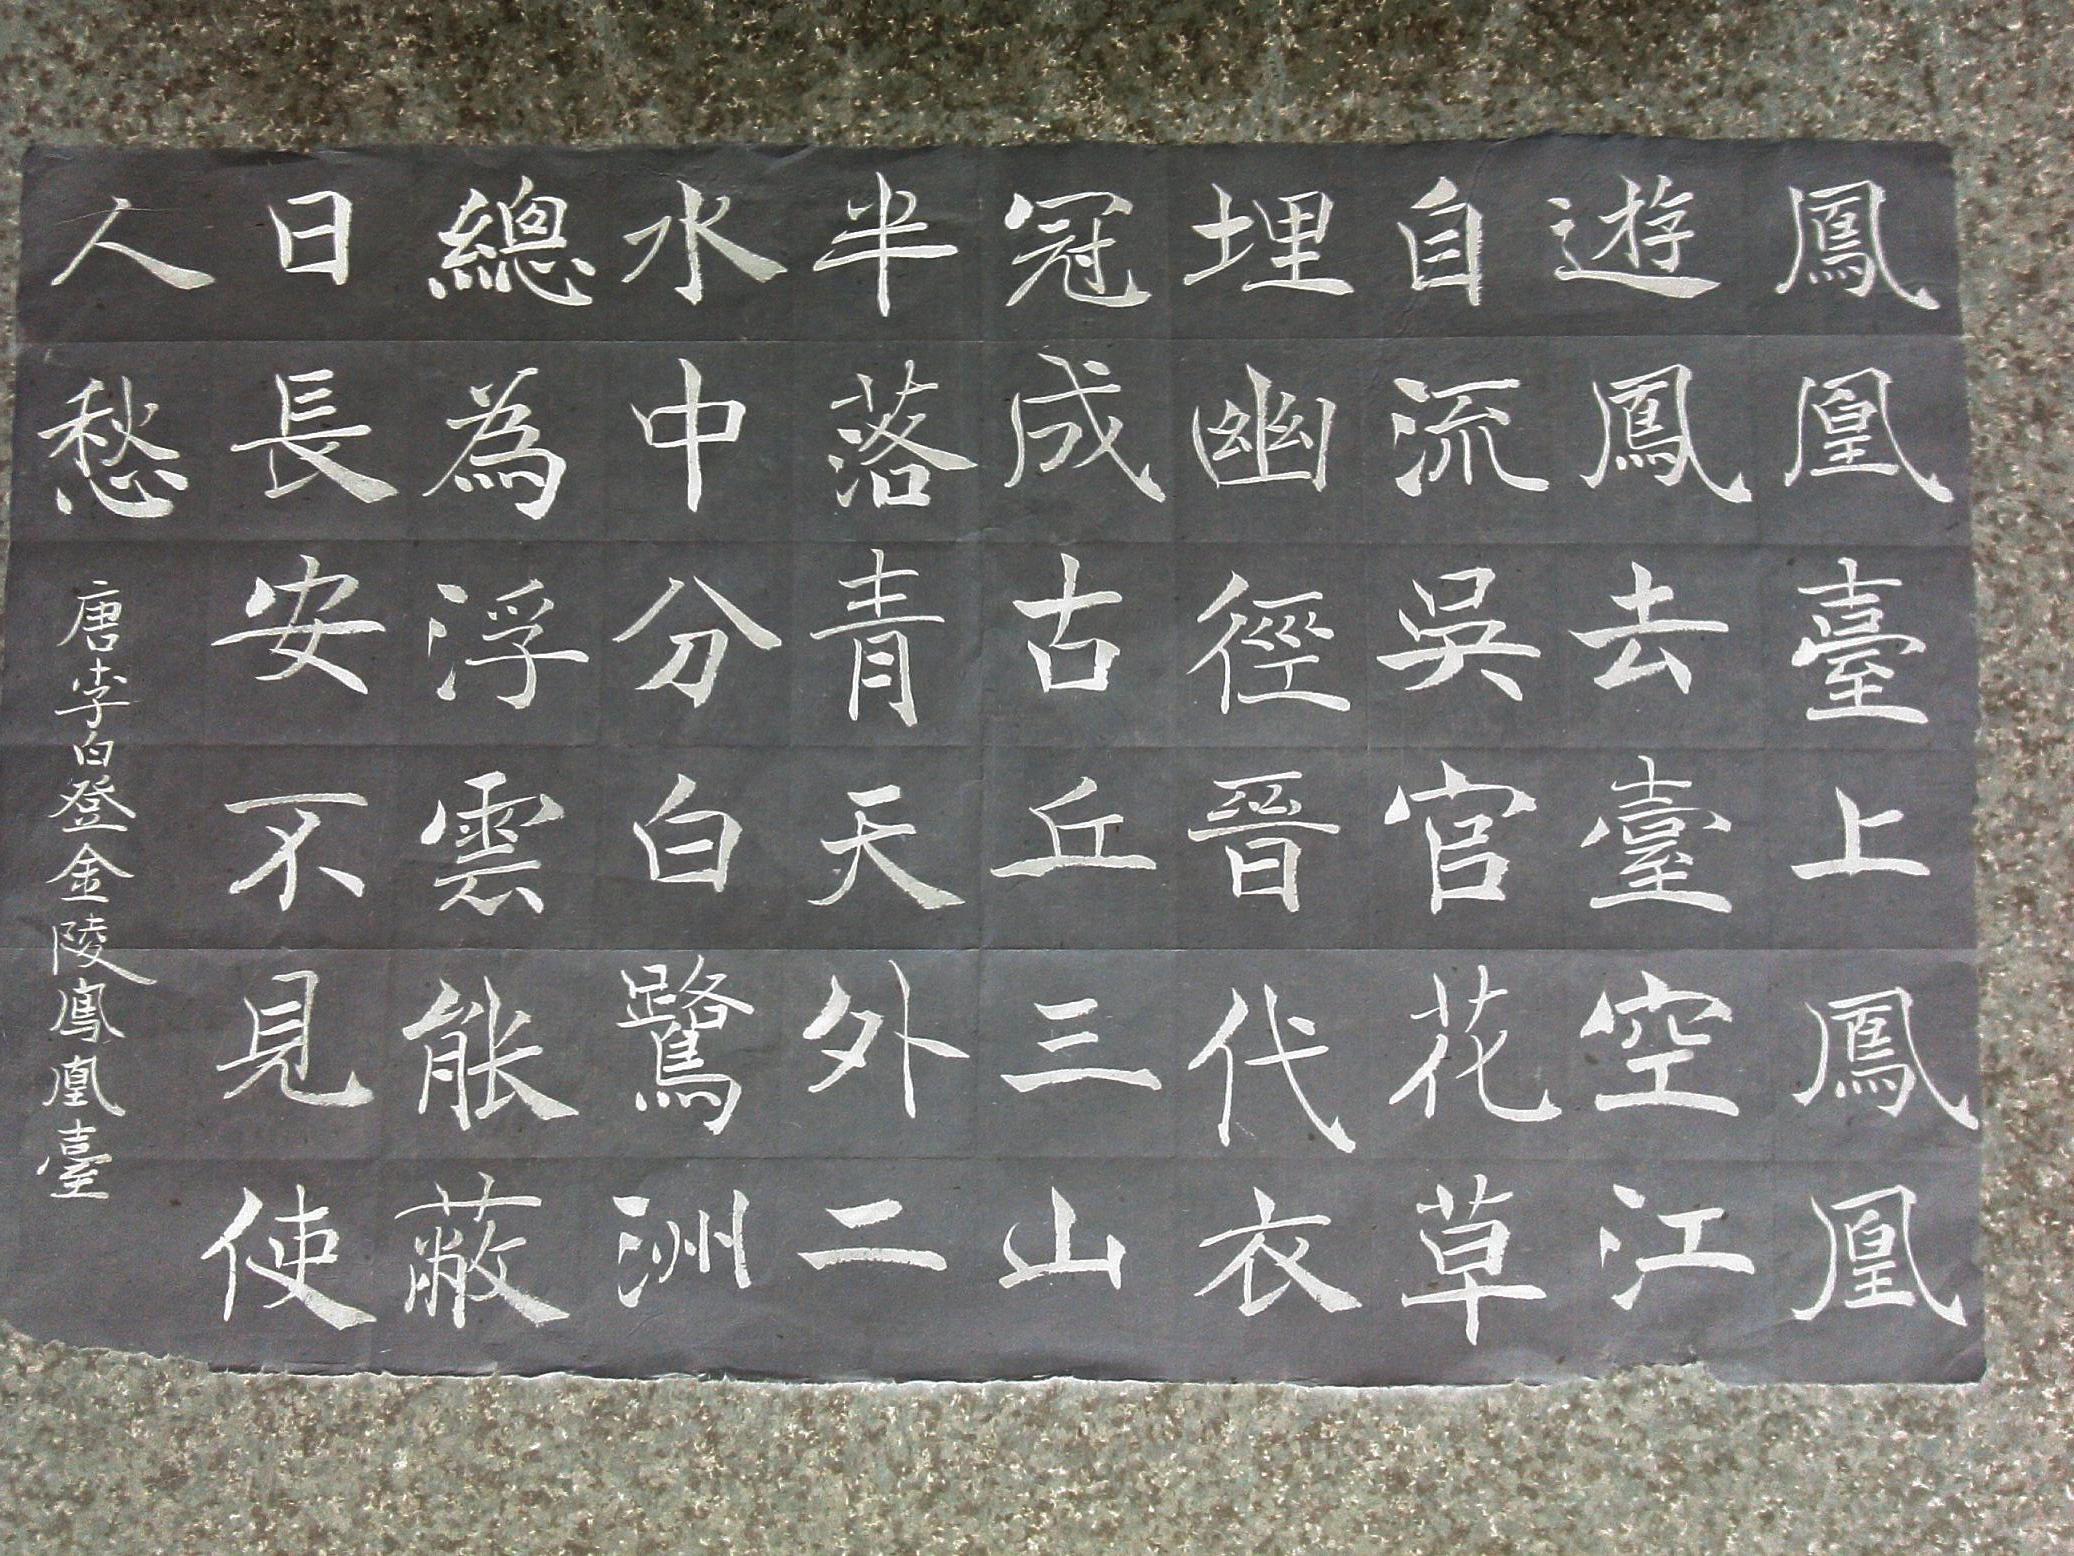 鳳凰臺上鳳凰
遊鳳去臺空江
自流吳官花草
埋幽徑晉代衣
冠成古丘三山
半落青天外二
水中分白鷺洲
總為浮雲能蔽
日長安不見使
人愁
唐李白登金陵鳳凰臺